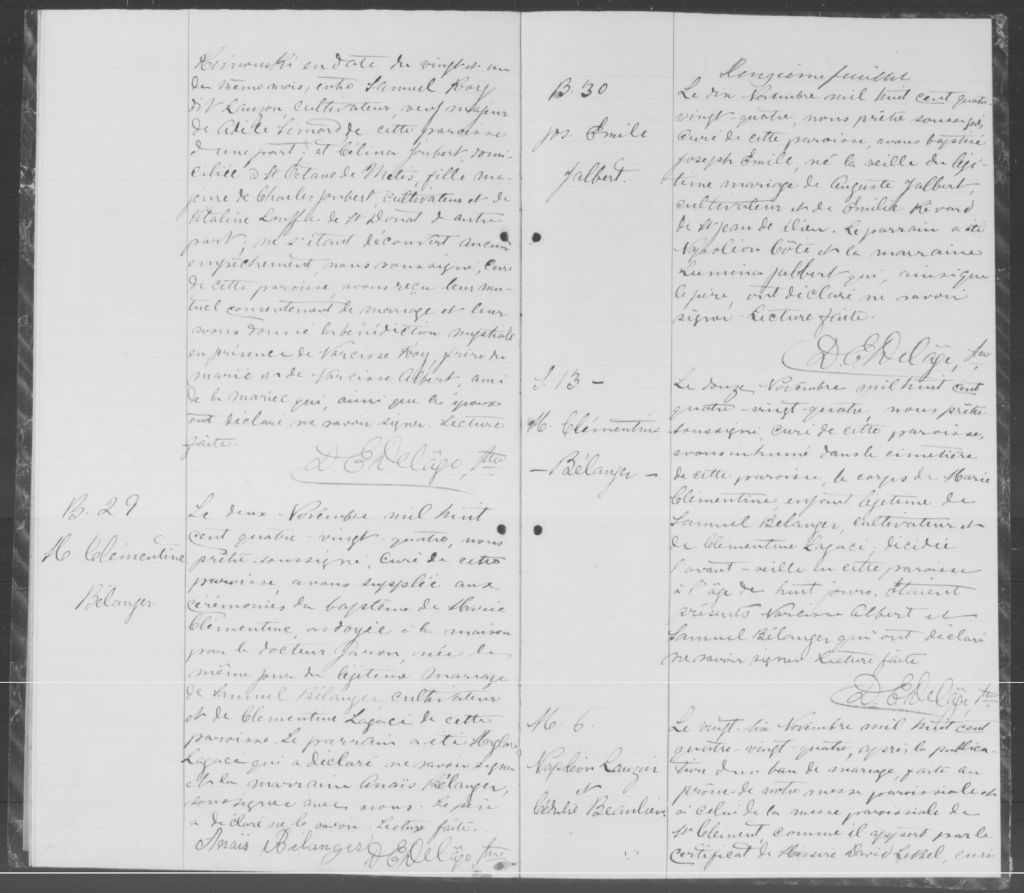 Rimouski en date du vingt et un
du même mois, entre Samuel Roy
dit Lauzon cultivateur, veuf majeur
de Adèle Simard de cette paroisse
d'une part; et Célina Joubert domi-
ciliée à St Octave de Métis, fille ma-
jeure de Charles Joubert, cultivateur et de
de St Donat d'autre
part; ne s'étant découvert aucun
empêchement, nous soussigné, curé
de cette paroisse, avons reçu leur mu-
tuel consentement de mariage et leur
avons donné la bénédiction nuptiale
en présence de Narcisse Roy, frère du
marié et de Narcisse Albert, ami
de la mariée qui, ainsi que les époux
ont déclaré ne savoir signer. Lecture
faite.
D. E. Delâge, Ptre
B. 29
M. Clémentine
Bélanger
Le deux Novembre mil huit
cent quatre-vingt-quatre, nous
prêtre soussigné, curé de cette
paroisse, avons suppléé aux
cérémonies du baptême de Marie
Clémentine, ondoyée à la maison
par le docteur, née le
même jour du légitime mariage
de Samuel Bélanger cultivateur
et de Clémentine Lagacé de cette
paroisse. Le parrain a été
Lagacé qui a déclaré ne savoir signer
et la marraine Anaïs Bélanger,
soussignée avec nous. Le père
a déclaré ne le savoir. Lecture faite.
Anaïs Bélanger D. E. Delâge, Ptre
Onzième feuillet
B. 30
Jos. Émile
Jalbert.
Le dix Novembre mil huit cent quatre
vingt-quatre, nous prêtre soussigné,
curé de cette paroisse, avons baptisé
Joseph Émile, né la veille du légi-
time mariage de Auguste Jalbert
cultivateur et de Émilie Rivard
de St Jean de Dieu. Le parrain a été
Napoléon Côté et la marraine
Lumina Jalbert qui, ainsi que
le père, ont déclaré ne savoir
signer. Lecture faite.
D. E. Delâge, Ptre
S. 13 -
M. Clémentine
- Bélanger -
Le douze Novembre mil huit cent
quatre-vingt-quatre, nous prêtre
soussigné, curé de cette paroisse,
avons inhumé dans le cimetière
de cette paroisse, le corps de Marie
Clémentine enfant légitime de
Samuel Bélanger, cultivateur et
de Clémentine Lagacé, décédée
l'avant-veille en cette paroisse
à l'âge de huit jours. Étaient
présents Narcisse Albert et
Samuel Bélanger qui ont déclaré
ne savoir signer Lecture faite
D. E. Delâge Ptre
M. 6.
Napoléon Lauzier
et
Cédulie Beaulieu
Le vingt-six Novembre mil huit cent
quatre-vingt-quatre, après la publica-
tion d'un ban de mariage, faite au
prône de notre messe paroissiale et
à celui de la messe paroissiale de
St Clément, comme il appert par le
certificat de Messire David LeBel, curé